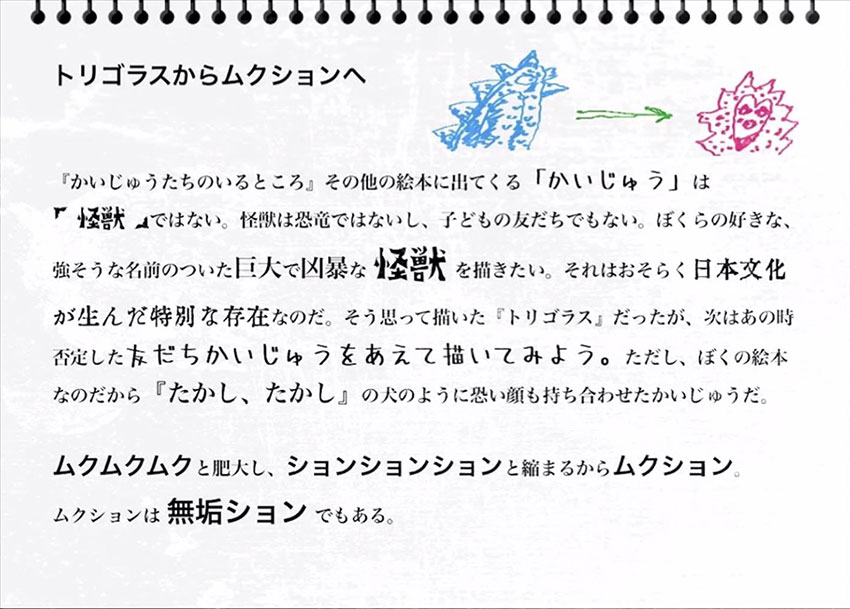 トリゴラスからムクションへ
『かいじゅうたちのいるところ』その他の絵本に出てくる「かいじゅう」は
「怪獣」ではない。怪獣は恐竜ではないし、子どもの友だちでもない。ぼくらの好きな、
強そうな名前のついた巨大で凶暴な怪獣を描きたい。それはおそらく日本文化
が生んだ特別な存在なのだ。そう思って描いた『トリゴラス』だったが、次はあの時
否定した友だちかいじゅうをあえて描いてみよう。ただし、ぼくの絵本
なのだから『たかし、たかし』の犬のように恐い顔も持ち合わせたかいじゅうだ。
ムクムクムクと肥大し、ションションションと縮まるからムクション。
ムクションは無垢ションでもある。